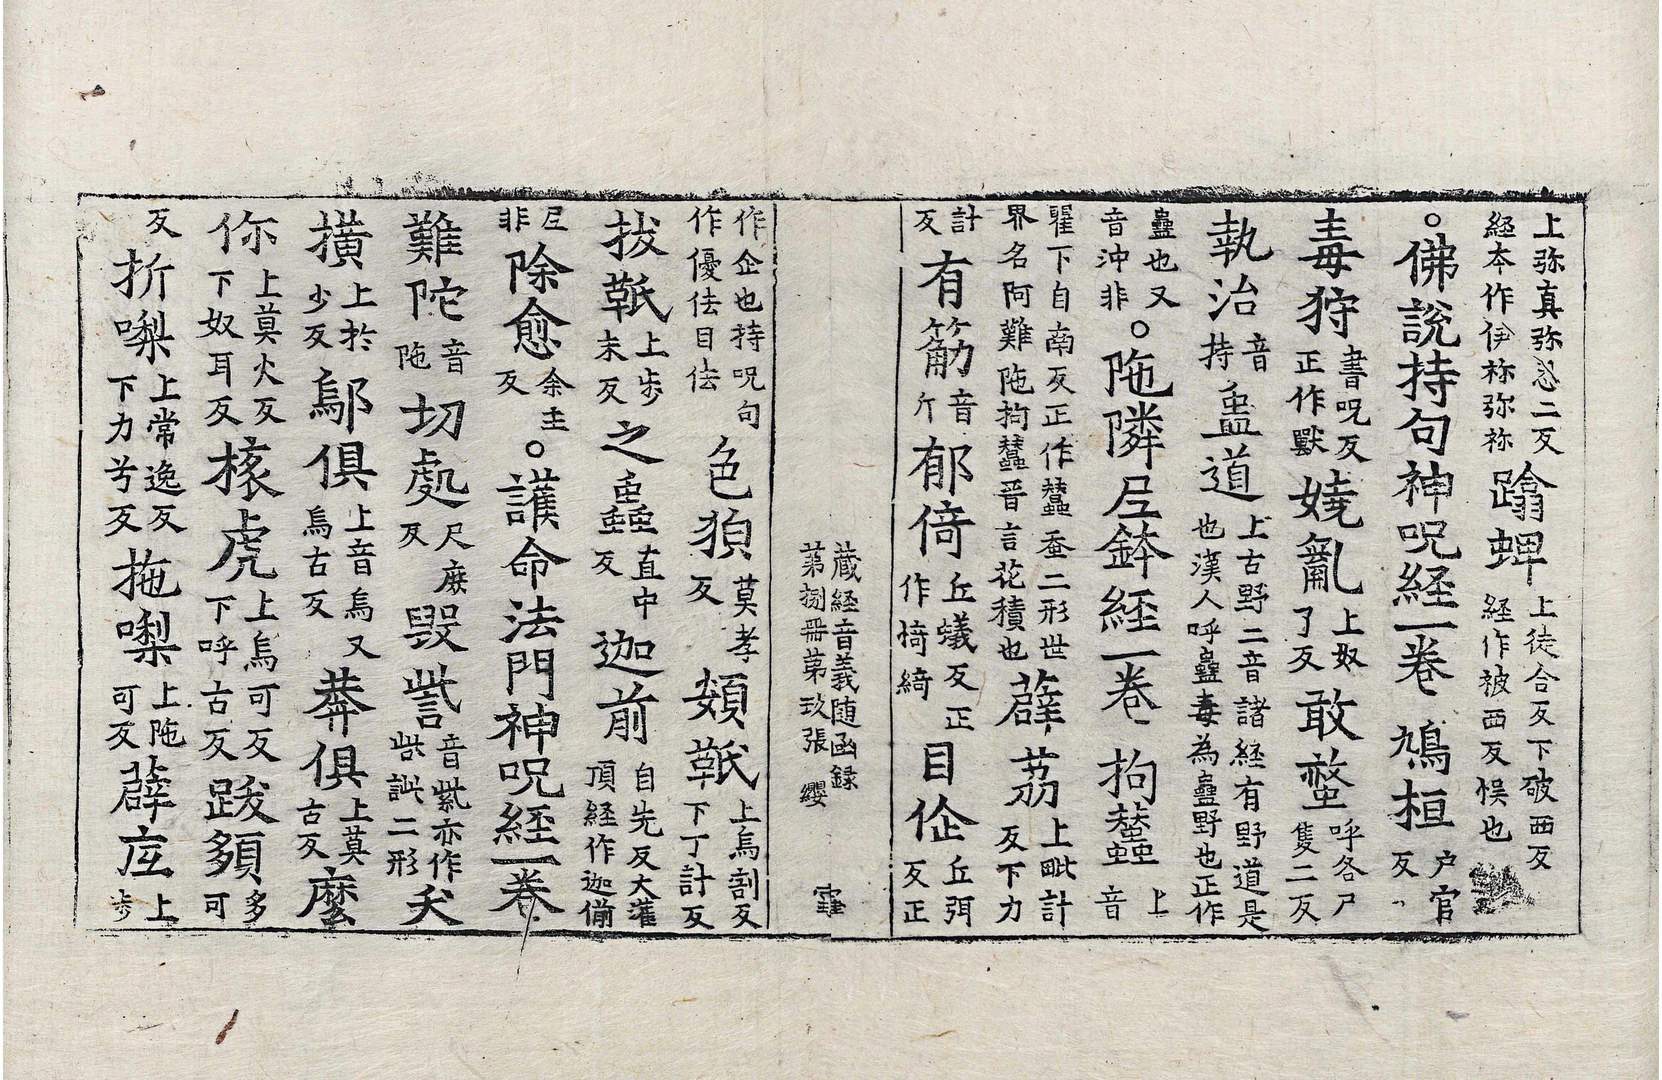 上弥真弥忩二反経本作伊祢弥祢蹹蜱上徒合反下破西反経作被西反悮也
。佛說持句神呪経一卷、鳩桓户官反、
毒狩書呪反正作獸嬈亂上奴了反敢螫呼各尸隻二反
執治音持蛊道上古野二音諸経有野道是也漢人呼蠱毒為蠱野也正作
蠱也又音沖非。陁隣𡰱鉢経一卷、拘蠽上音
瞿下自南反正作蠶蚕二形世界名阿難陁拘蠶晋言花積也薜荔上毗計反下力
計反有筋音斤郁倚丘蟻反正作犄綺目企丘弭反正
蔵経音義随函録第捌冊第玖張 纓
作企也持呪句作優佉目佉色㹸莫孝反頞䩭上烏割反下丁計反
拔䩭上步末反之蟲直中反迦前自先反大灌頂経作迦偂
𡰱非除愈余圭反。護命法門神呪経一卷、
難陀音陁切處尺庥反毀訾音紫亦作呰訿二形犬
撗上於少反鄔俱上音烏又烏古反莽俱上莫古反麼
你上莫火反下奴耳反㨲虎上烏可反下呼古反跋頞多可
反折㘑上常逸反下力兮反拖㘑上陁可反薜㡳上步